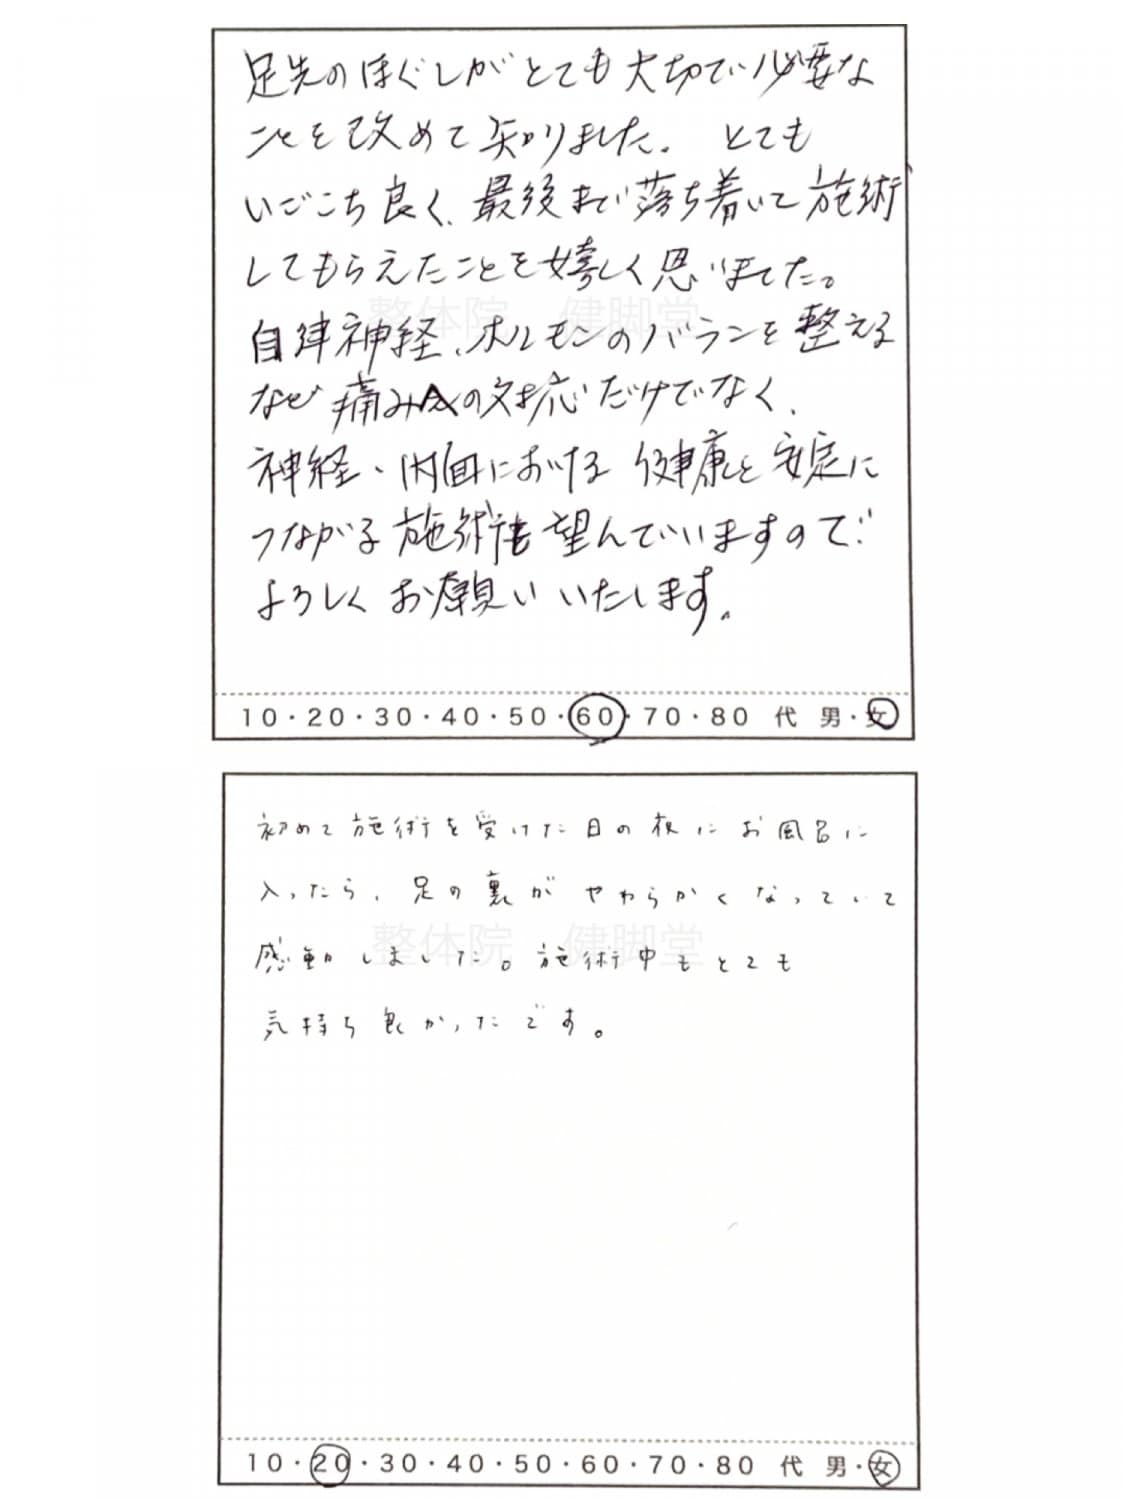 足先のほぐしがとても大切で必要な
ことを改めて知りました。 とても
いごこち良く、最後まで落ち着いて施術
してもらえたことを嬉しく思いました。
整体院 健脚堂
自律神経、ホルモンのバランを整える
など 痛みへの対応だけでなく、
神経・内面における健康と安定に
つながる施術も望んでいますので
よろしくお願いいたします。
10・20・30・40・50・60・70・80 代 男・女
初めて施術を受けた日の夜にお風呂に
入ったら、足の裏がやわらかくなっていて
整体院 健脚堂
感動しました。施術中もとても
気持ち良かったです。
10・20・30・40・50・60・70・80 代 男・女